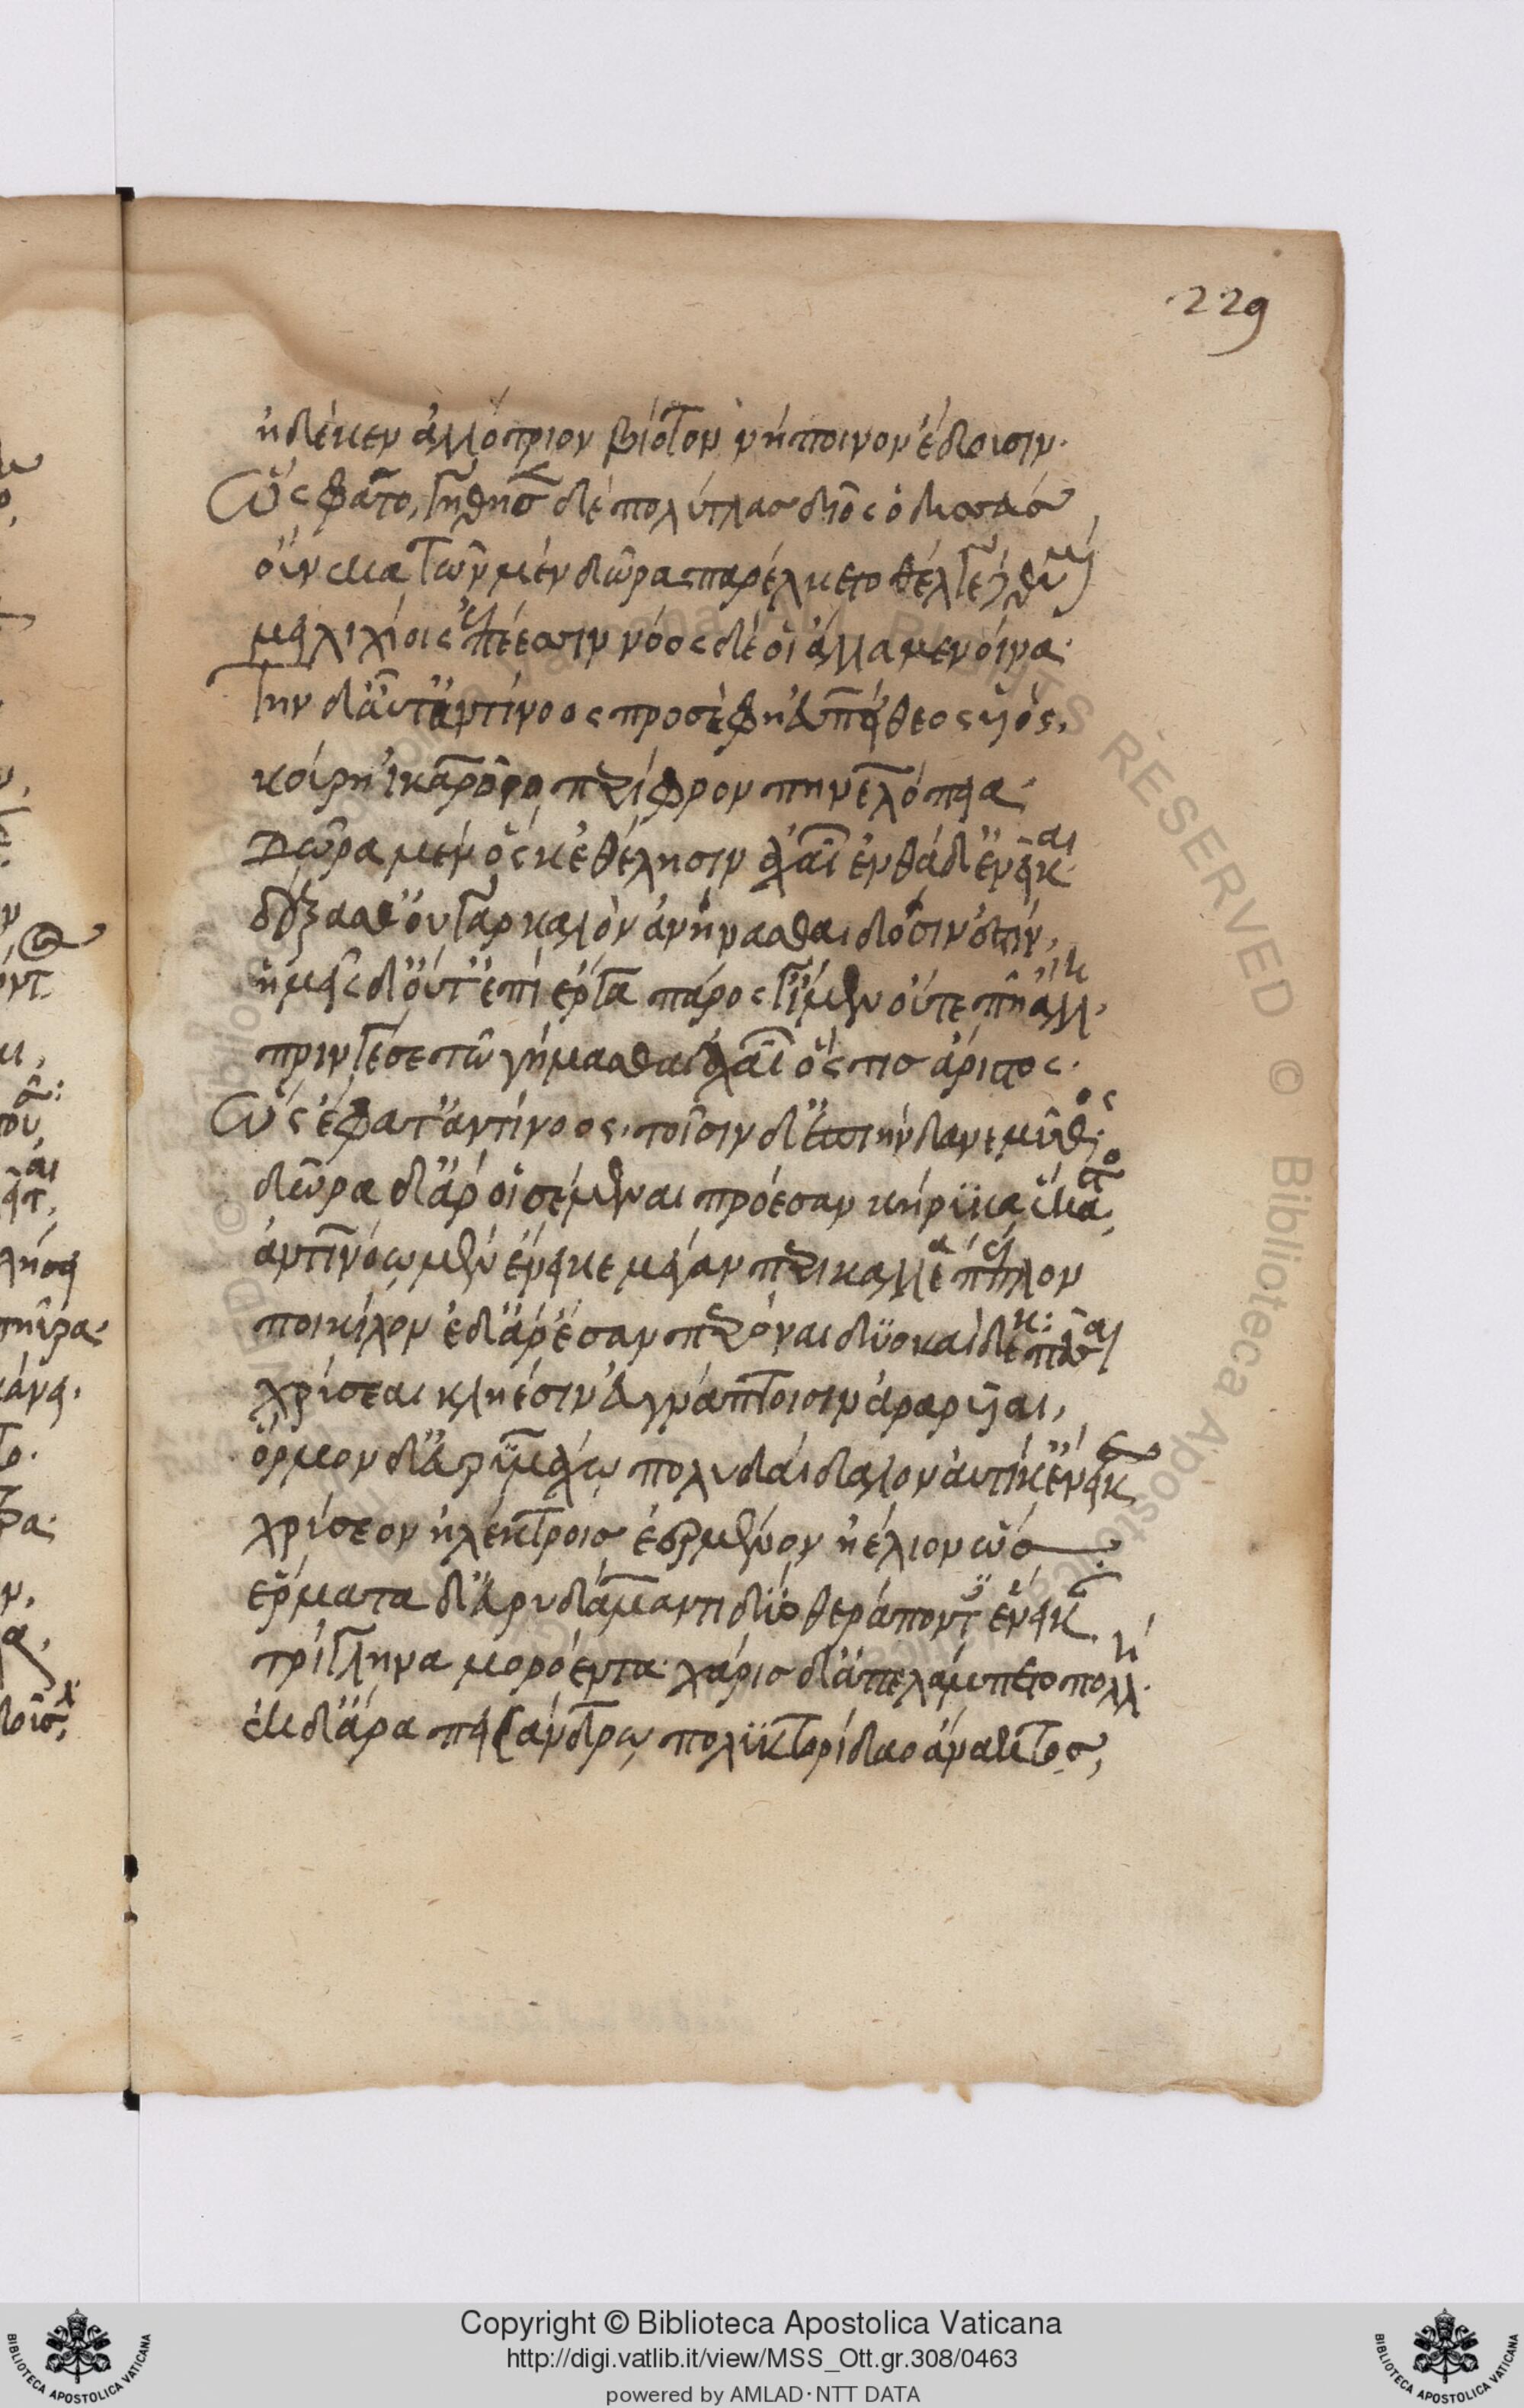 229
ηδέκεν ἀλλότριον βίοτον νήποινον ἔδουσιν·
Ὣς φάτο, γήθησε δὲ πολύτλας δῖος ὀδυσσεύς,
οὕνεκα τῶν μὲν δῶρα παρέλκετο θέλγε δὲ θυμὸν
μειλιχίοις ἐπέεσσιν νόος δέ οἱ ἄλλα μενοίνα·
Τὴν δ' αὖτ' ἀντίνοος προσέφη εὐπείθεος υἱός,
κούρη ἰκαρίοιο περίφρον πηνελόπεια·
Δῶρα μὲν ὅς κ' ἐθέλησιν ἀχαιῶν ἐνθάδ' ἐνεῖκαι
δέξασθ' οὐ γὰρ καλὸν ἀνήνασθαι δόσιν ἐστίν,
ἡμεῖς δ' οὔτ' ἐπὶ ἔργα πάρος γ' ἴμεν οὔτέ πη ἄλλη·
πρίν γέ σε τῷ γήμασθαι ἀχαιῶν ὅς τις ἄριστος·
Ὣς ἔφατ' ἀντίνοος· τοῖσιν δ' ἐπιήνδανε μῦθος·
δῶρα δ' ἄρ' οἰσέμεναι πρόεσαν κήρυκα ἕκαστος,
ἀντινόω μὲν ἔνεικε μέγαν περικαλλέα πέπλον
ποικίλον ἐν δ' ἄρ' ἔσαν περόναι δυοκαίδεκα πᾶσαι
χρύσεαι κληῖσιν εὐγνάμπτοις ἀραρυῖαι,
ὅρμον δ' εὐρυμάχω πολυδαίδαλον αὐτίκ' ἔνεικε
χρύσεον ἠλέκτροις ἐερμένον ἠέλιον ὥς
ἕρματα δ' εὐρυδάμαντι δύο θεράποντες ἔνεικαν
τρίγληνα μορόεντα· χάρις δ' ἀπελάμπετο πολλή·
ἐκ δ' ἄρα πεισάνδρω πολυκτορίδαο ἄνακτος,
Copyright © Biblioteca Apostolica Vaticana
http://digi.vatlib.it/view/MSS_Ott.gr.308/0463
powered by AMLAD·NTT DATA